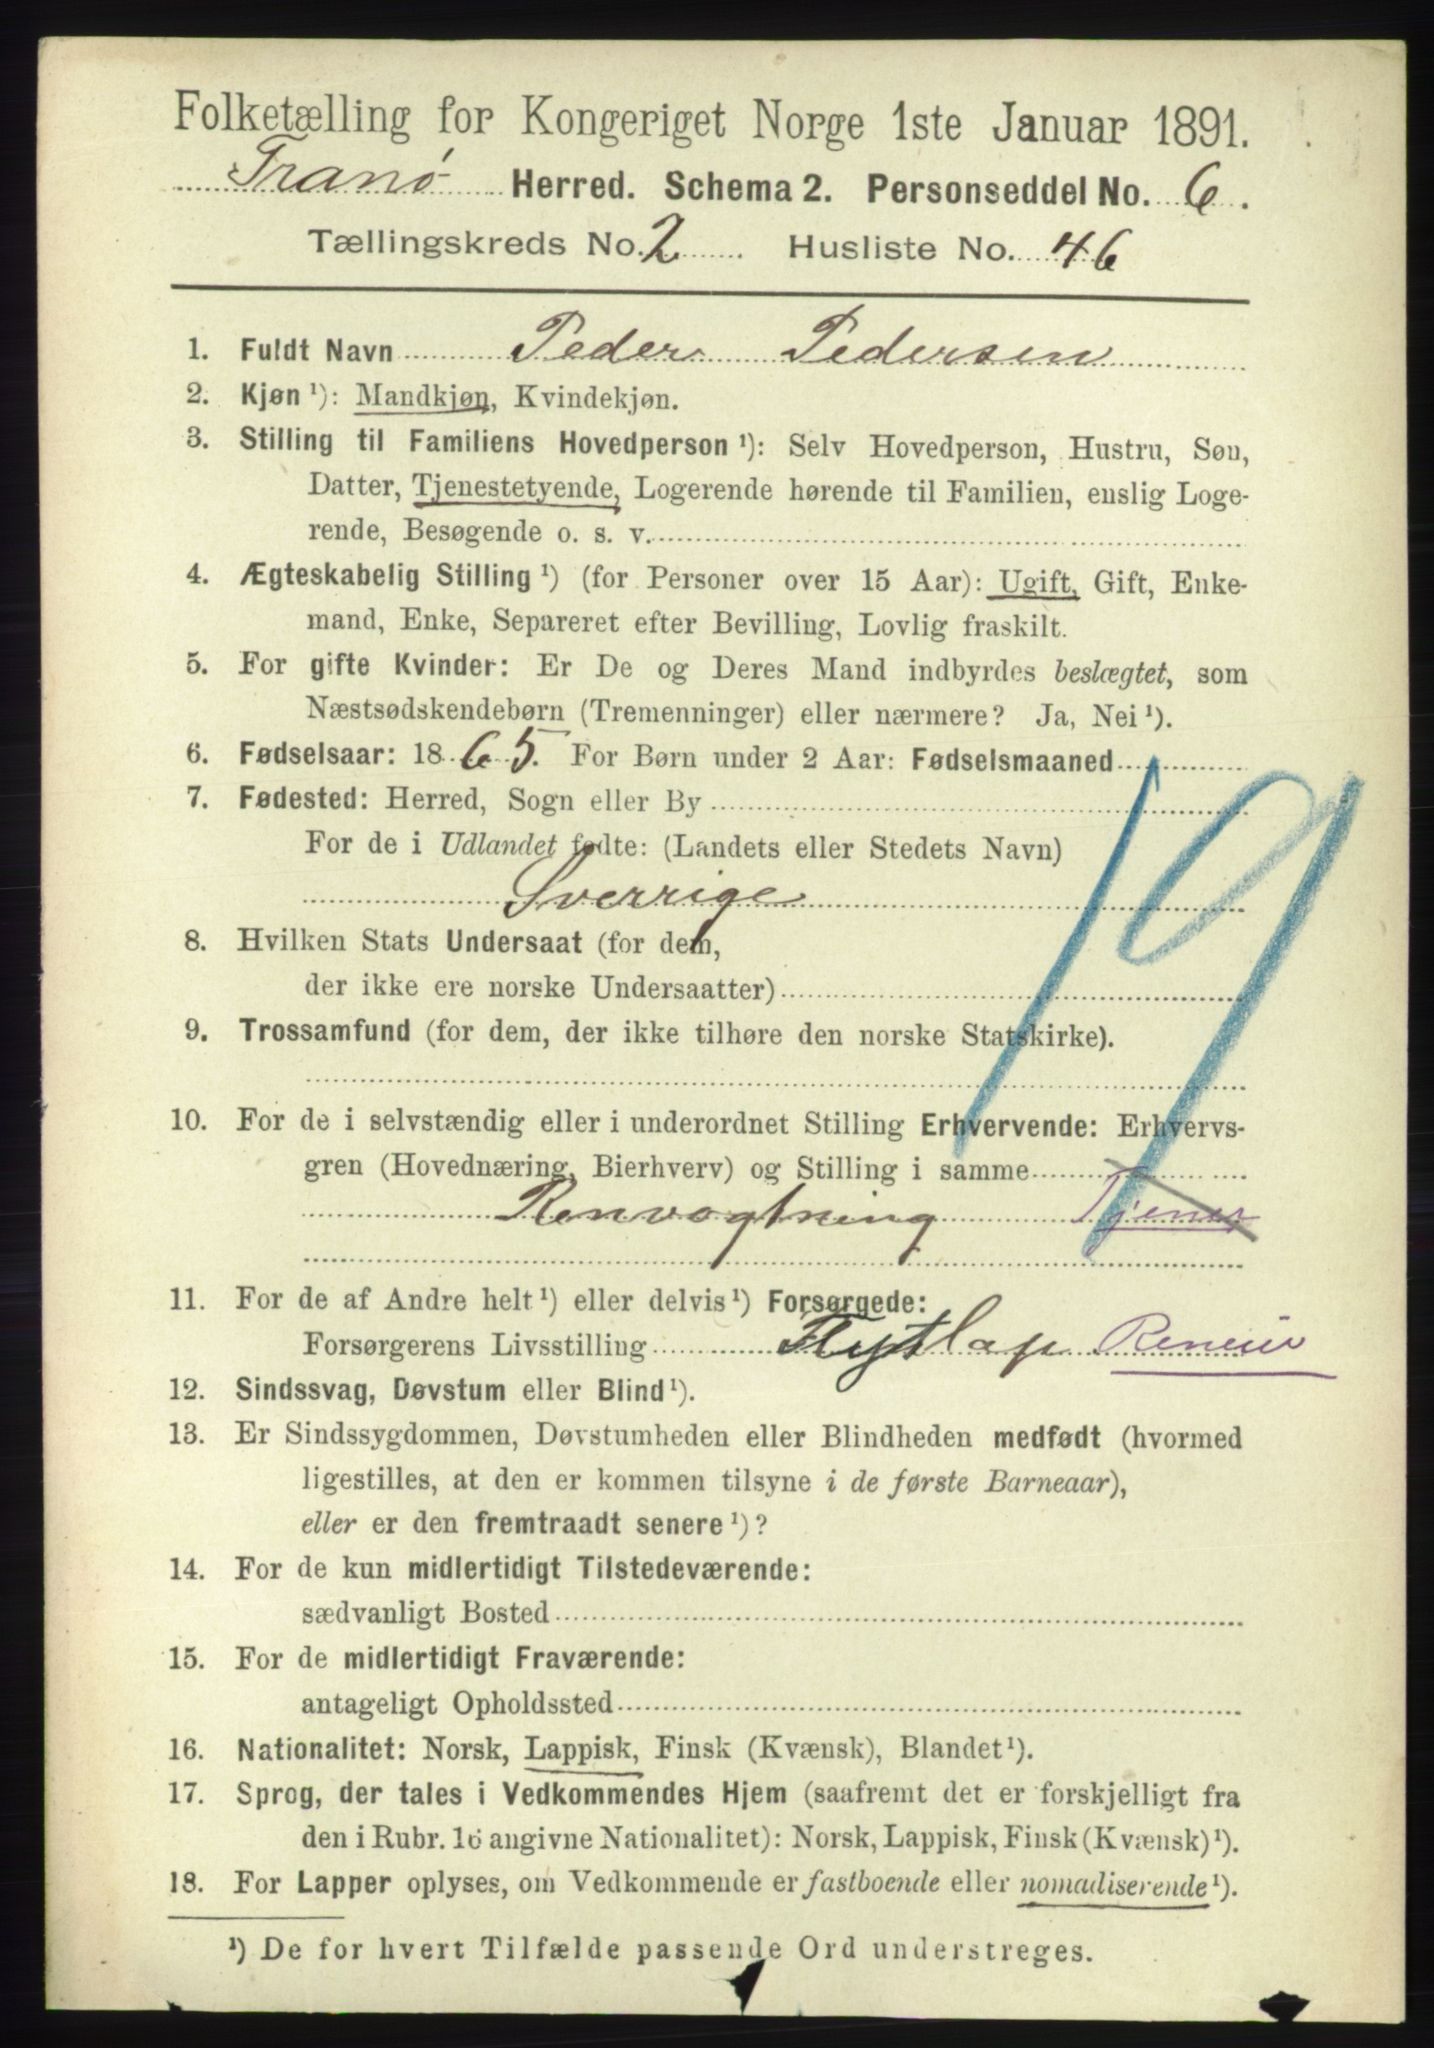 Folketælling for Kongeriget Norge 1ste Januar 1891.
Tranø Herred. Schema 2. Personseddel No. 6.
Tællingskreds No. 2 Husliste No. 46
1. Fuldt Navn Peder Pedersen
2. Kjøn ¹): Mandkjøn, Kvindekjøn.
3. Stilling til Familiens Hovedperson ¹): Selv Hovedperson, Hustru, Søn,
Datter, Tjenestetyende, Logerende hørende til Familien, enslig Loge-
rende, Besøgende o. s. v.
4. Ægteskabelig Stilling ¹) (for Personer over 15 Aar): Ugift, Gift, Enke-
mand, Enke, Separeret efter Bevilling, Lovlig fraskilt.
5. For gifte Kvinder: Er De og Deres Mand indbyrdes beslægtet, som
Næstsødskendebørn (Tremenninger) eller nærmere? Ja, Nei ¹).
6. Fødselsaar: 1865. For Børn under 2 Aar: Fødselsmaaned
7. Fødested: Herred, Sogn eller By
For de i Udlandet fødte: (Landets eller Stedets Navn)
Sverrige
19
8. Hvilken Stats Undersaat (for dem,
der ikke ere norske Undersaatter)
9. Trossamfund (for dem, der ikke tilhøre den norske Statskirke).
10. For de i selvstændig eller i underordnet Stilling Erhvervende: Erhvervs-
gren (Hovednæring, Bierhverv) og Stilling i samme
Renvogtning Tjener
11. For de af Andre helt ¹) eller delvis ¹) Forsørgede:
Forsørgerens Livsstilling Flytlap Reneier
12. Sindssvag, Døvstum eller Blind ¹).
13. Er Sindssygdommen, Døvstumheden eller Blindheden medfødt (hvormed
ligestilles, at den er kommen tilsyne i de første Barneaar),
eller er den fremtraadt senere ¹)?
14. For de kun midlertidigt Tilstedeværende:
sædvanligt Bosted
15. For de midlertidigt Fraværende:
antageligt Opholdssted
16. Nationalitet: Norsk, Lappisk, Finsk (Kvænsk), Blandet ¹).
17. Sprog, der tales i Vedkommendes Hjem (saafremt det er forskjelligt fra
den i Rubr. 16 angivne Nationalitet): Norsk, Lappisk, Finsk (Kvænsk) ¹).
18. For Lapper oplyses, om Vedkommende er fastboende eller nomadiserende ¹).
¹) De for hvert Tilfælde passende Ord understreges.